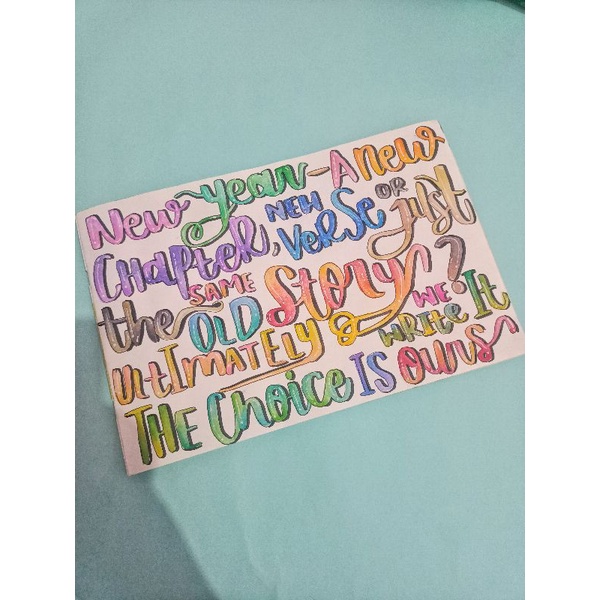 New year - A new
Chapter, New Verse or just
the SAME OLD Story?
Ultimately WE WRITE It
THE Choice Is ours